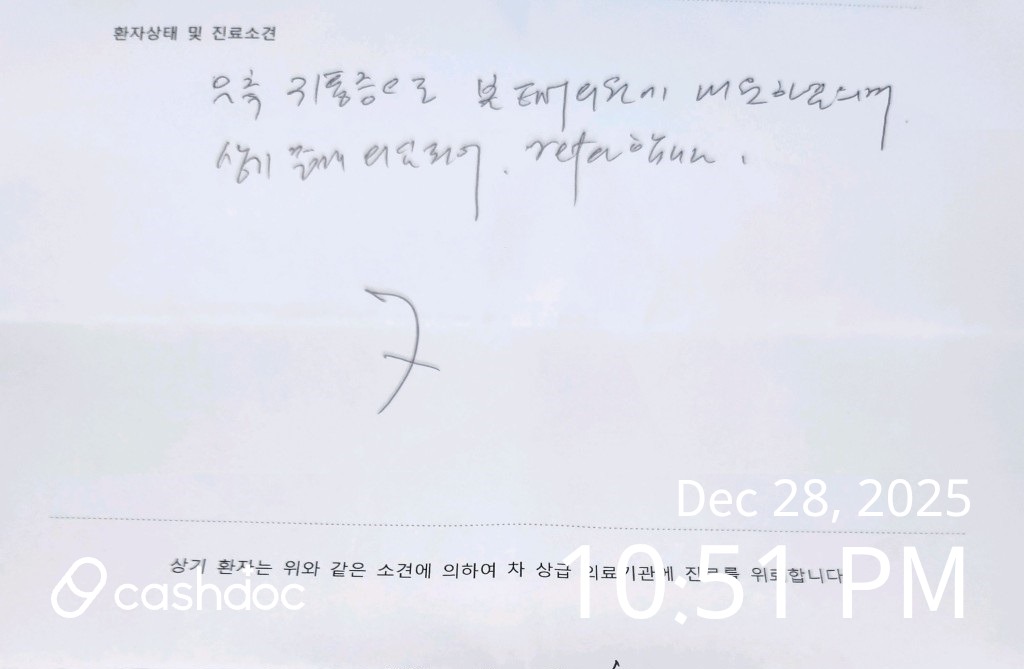 환자상태 및 진료소견
우측 귀통증으로 본 의원에 내원하였으며
상기 의심되어. refer 합니다.
Dec 28, 2025
상기 환자는 위와 같은 소견에 의하여 차 상급 의료기관에 진료를 위뢰합니다
cashdoc
10:51 PM